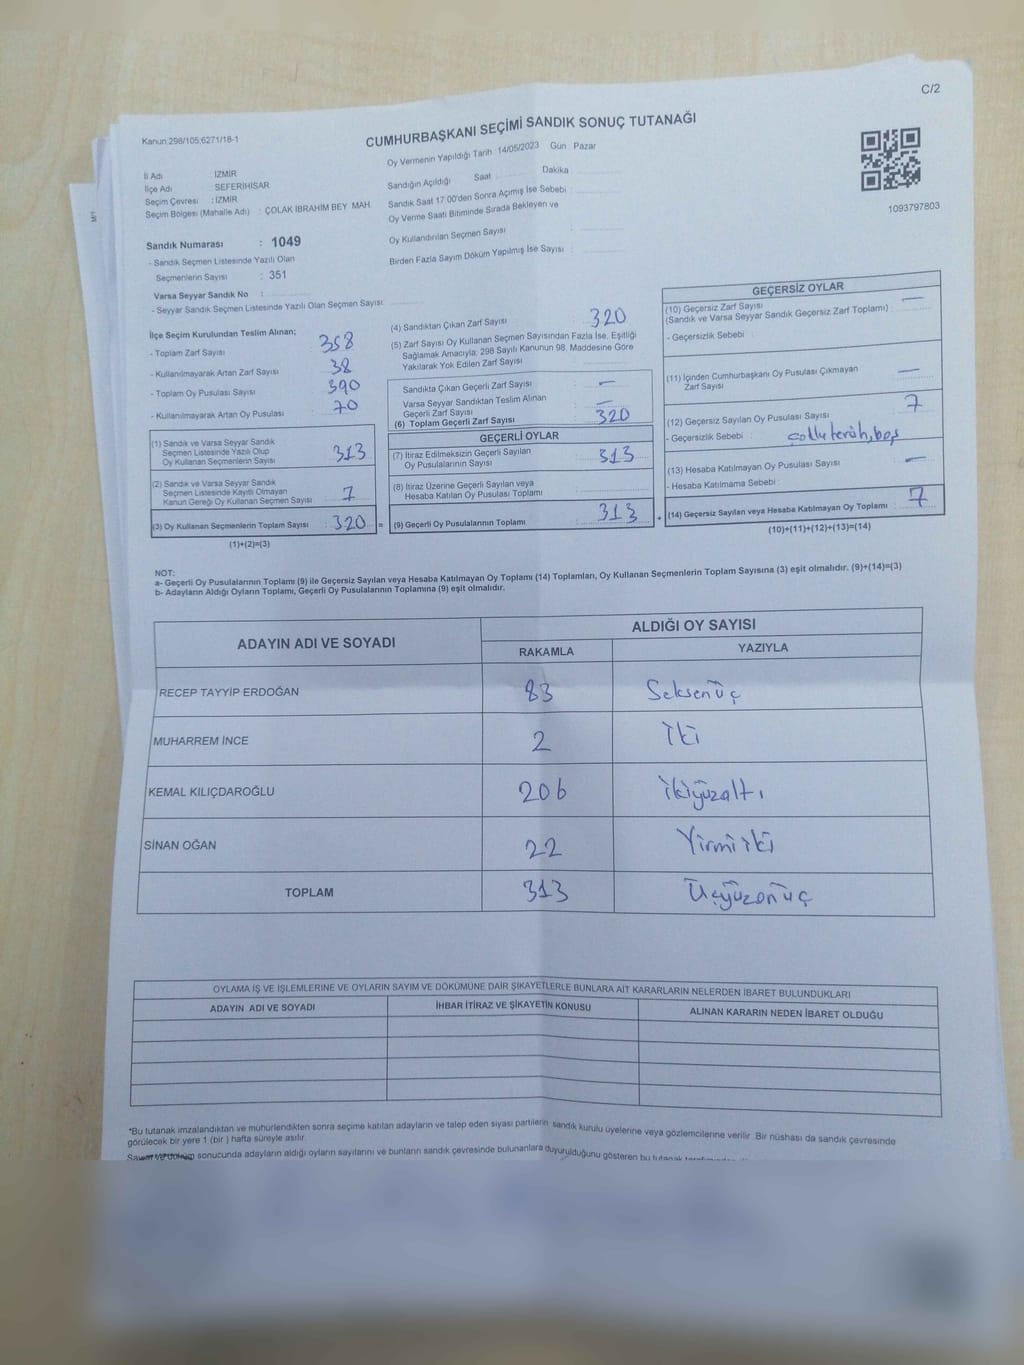 C/2
Kanun:298/105;6271/18-1
CUMHURBAŞKANI SEÇİMİ SANDIK SONUÇ TUTANAĞI
İl Adı İZMİR
İlçe Adı : SEFERİHİSAR
Seçim Çevresi : İZMİR
Seçim Bölgesi (Mahalle Adı) : ÇOLAK İBRAHİM BEY MAH.
Oy Vermenin Yapıldığı Tarih 14/05/2023 Gün Pazar
Sandığın Açıldığı Saat Dakika
Sandık Saat 17:00'den Sonra Açımış İse Sebebi :
Oy Verme Saati Bitiminde Sırada Bekleyen ve
Oy Kullandırılan Seçmen Sayısı
Birden Fazla Sayım Döküm Yapılmış İse Sayısı :
1093797803
Sandık Numarası : 1049
- Sandık Seçmen Listesinde Yazılı Olan
Seçmenlerin Sayısı : 351
Varsa Seyyar Sandık No :
- Seyyar Sandık Seçmen Listesinde Yazılı Olan Seçmen Sayısı:
İlçe Seçim Kurulundan Teslim Alınan;
- Toplam Zarf Sayısı 358
- Kullanılmayarak Artan Zarf Sayısı 38
- Toplam Oy Pusulası Sayısı 390
- Kullanılmayarak Artan Oy Pusulası 70
(1) Sandık ve Varsa Seyyar Sandık
Seçmen Listesinde Yazılı Olup
Oy Kullanan Seçmenlerin Sayısı : 313
(2) Sandık ve Varsa Seyyar Sandık
Seçmen Listesinde Kayıtlı Olmayan
Kanun Gereği Oy Kullanan Seçmen Sayısı : 7
(3) Oy Kullanan Seçmenlerin Toplam Sayısı : 320 =
(1)+(2)=(3)
(4) Sandıktan Çıkan Zarf Sayısı : 320
(5) Zarf Sayısı Oy Kullanan Seçmen Sayısından Fazla İse, Eşitliği
Sağlamak Amacıyla; 298 Sayılı Kanunun 98. Maddesine Göre
Yakılarak Yok Edilen Zarf Sayısı :
Sandıkta Çıkan Geçerli Zarf Sayısı : –
Varsa Seyyar Sandıktan Teslim Alınan
Geçerli Zarf Sayısı : –
(6) Toplam Geçerli Zarf Sayısı : 320
GEÇERLİ OYLAR
(7) İtiraz Edilmeksizin Geçerli Sayılan
Oy Pusulalarının Sayısı : 313
(8) İtiraz Üzerine Geçerli Sayılan veya
Hesaba Katılan Oy Pusulası Toplamı :
(9) Geçerli Oy Pusulalarının Toplamı : 313 +
GEÇERSİZ OYLAR
(10) Geçersiz Zarf Sayısı
(Sandık ve Varsa Seyyar Sandık Geçersiz Zarf Toplamı) : –
- Geçersizlik Sebebi :
(11) İçinden Cumhurbaşkanı Oy Pusulası Çıkmayan
Zarf Sayısı : –
(12) Geçersiz Sayılan Oy Pusulası Sayısı : 7
- Geçersizlik Sebebi :
(13) Hesaba Katılmayan Oy Pusulası Sayısı : –
- Hesaba Katılmama Sebebi :
(14) Geçersiz Sayılan veya Hesaba Katılmayan Oy Toplamı : 7
(10)+(11)+(12)+(13)=(14)
NOT:
a- Geçerli Oy Pusulalarının Toplamı (9) ile Geçersiz Sayılan veya Hesaba Katılmayan Oy Toplamı (14) Toplamları, Oy Kullanan Seçmenlerin Toplam Sayısına (3) eşit olmalıdır. (9)+(14)=(3)
b- Adayların Aldığı Oyların Toplamı, Geçerli Oy Pusulalarının Toplamına (9) eşit olmalıdır.
ADAYIN ADI VE SOYADI ALDIĞI OY SAYISI
RAKAMLA YAZIYLA
RECEP TAYYİP ERDOĞAN 83 Seksenüç
MUHARREM İNCE 2 İki
KEMAL KILIÇDAROĞLU 206 İkiyüzaltı
SİNAN OĞAN 22 Yirmiiki
TOPLAM 313 Üçyüzonüç
OYLAMA İŞ VE İŞLEMLERİNE VE OYLARIN SAYIM VE DÖKÜMÜNE DAİR ŞİKAYETLERLE BUNLARA AİT KARARLARIN NELERDEN İBARET BULUNDUKLARI
ADAYIN ADI VE SOYADI İHBAR İTİRAZ VE ŞİKAYETİN KONUSU ALINAN KARARIN NEDEN İBARET OLDUĞU
*Bu tutanak imzalandıktan ve mühürlendikten sonra seçime katılan adayların ve talep eden siyasi partilerin sandık kurulu üyelerine veya gözlemcilerine verilir. Bir nüshası da sandık çevresinde
görülecek bir yere 1 (bir) hafta süreyle asılır.
sonucunda adayların aldığı oyların sayılarını ve bunların sandık çevresinde bulunanlara duyurulduğunu gösteren bu tutanak